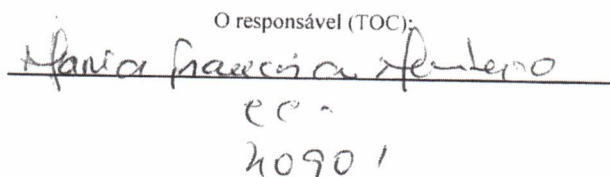 O responsável (TOC):
Maria Francisca Monteiro
CC.
20901